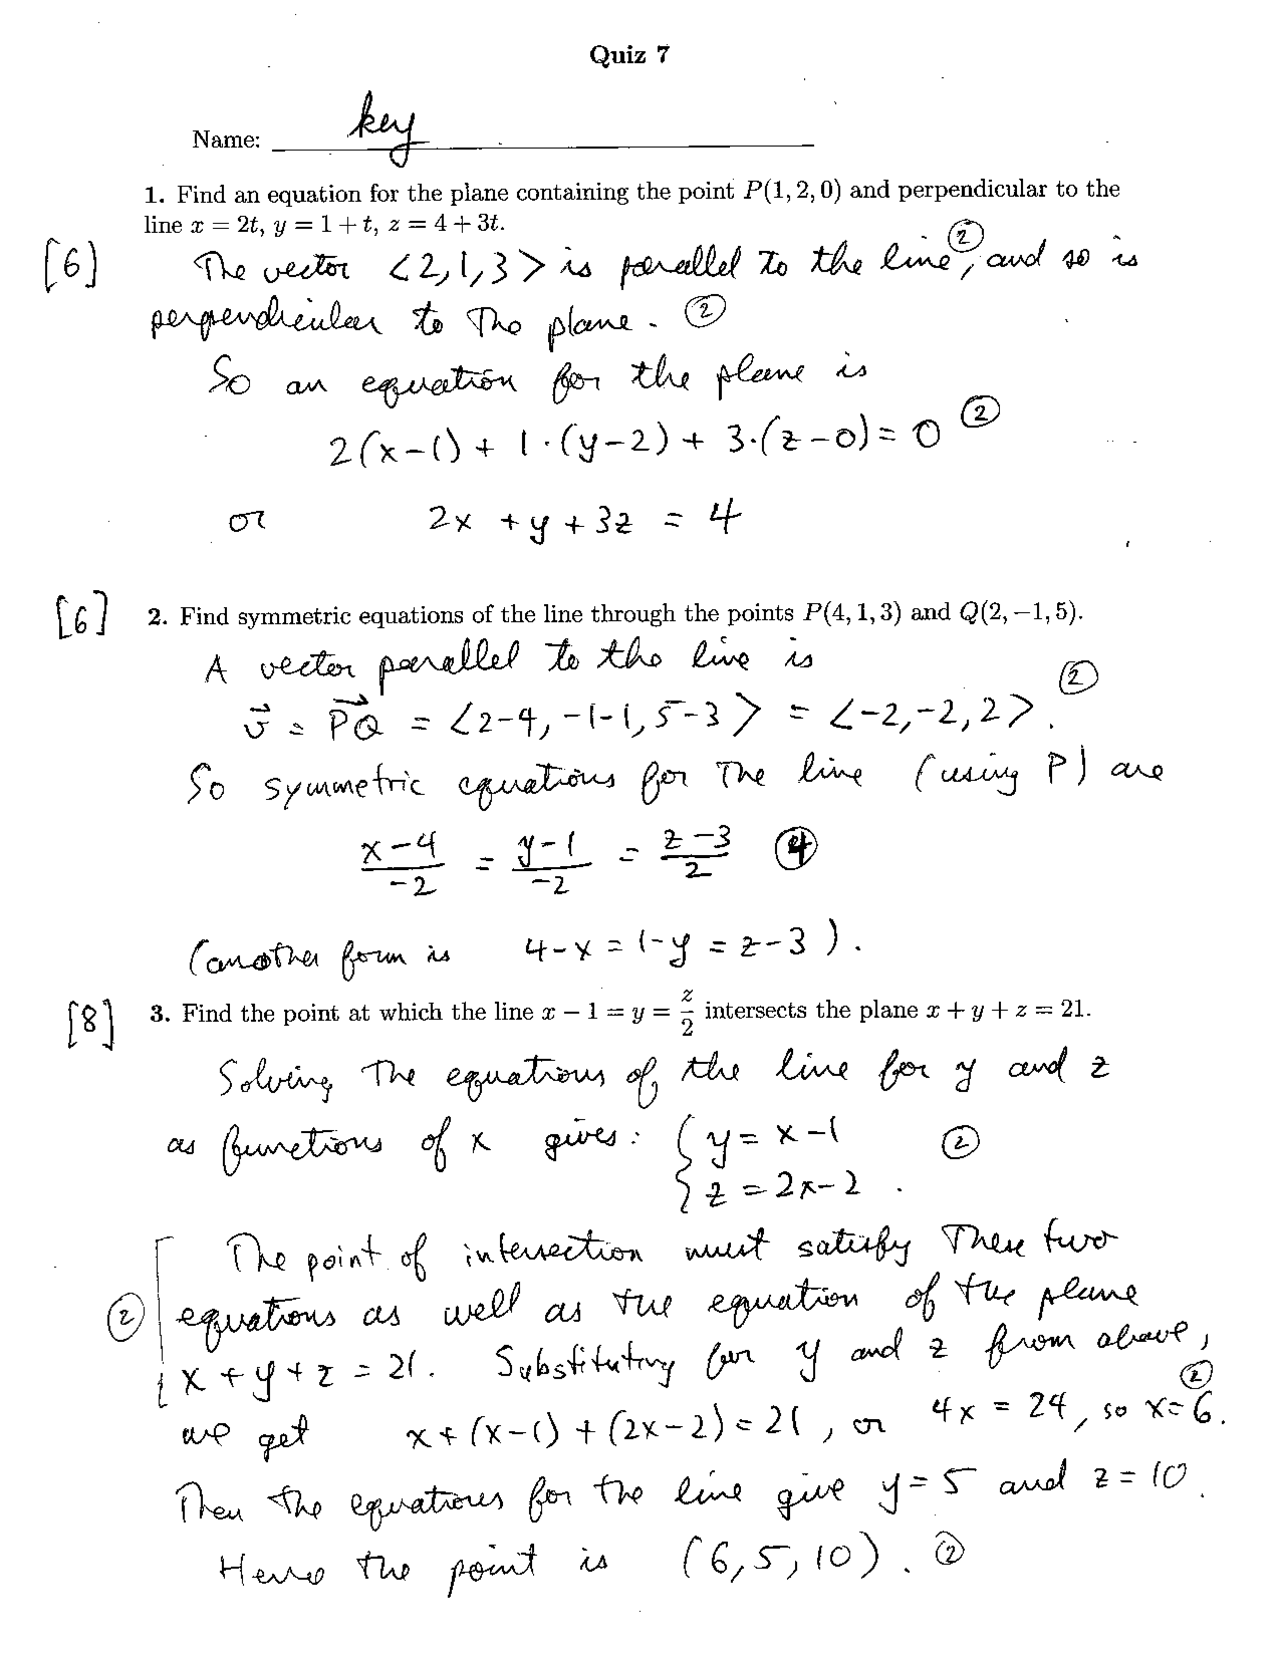 Quiz 7
Name: key
1. Find an equation for the plane containing the point P(1, 2, 0) and perpendicular to the
line x = 2t, y = 1 + t, z = 4 + 3t.
[6] The vector <2,1,3> is parallel to the line, ② and so is
perpendicular to the plane. ②
So an equation for the plane is
2(x-1) + 1·(y-2) + 3·(z-0) = 0 ②
or 2x + y + 3z = 4
[6] 2. Find symmetric equations of the line through the points P(4, 1, 3) and Q(2, −1, 5).
A vector parallel to the line is
v⃗ = PQ⃗ = <2-4, -1-1, 5-3> = <-2,-2,2>. ②
So symmetric equations for the line (using P) are
(x-4)/-2 = (y-1)/-2 = (z-3)/2 ④
(another form is 4-x = 1-y = z-3).
[8] 3. Find the point at which the line x − 1 = y = z/2 intersects the plane x + y + z = 21.
Solving the equations of the line for y and z
as functions of x gives: { y = x-1 ②
z = 2x-2 .
The point of intersection must satisfy these two
② equations as well as the equation of the plane
x + y + z = 21. Substituting for y and z from above,
we get x + (x-1) + (2x-2) = 21, or 4x = 24, so x=6. ②
Then the equations for the line give y = 5 and z = 10.
Hence the point is (6, 5, 10). ②